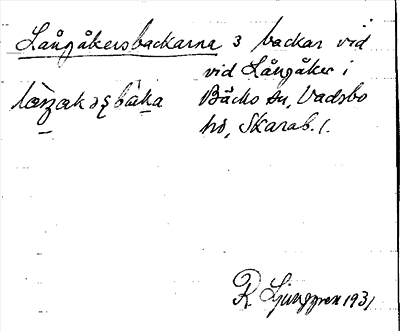 Långåkersbackarna 3 backar vid
vid Långåker i
Bäcks sn, Vadsbo
hd, Skarab. l.
R Ljunggren 1931